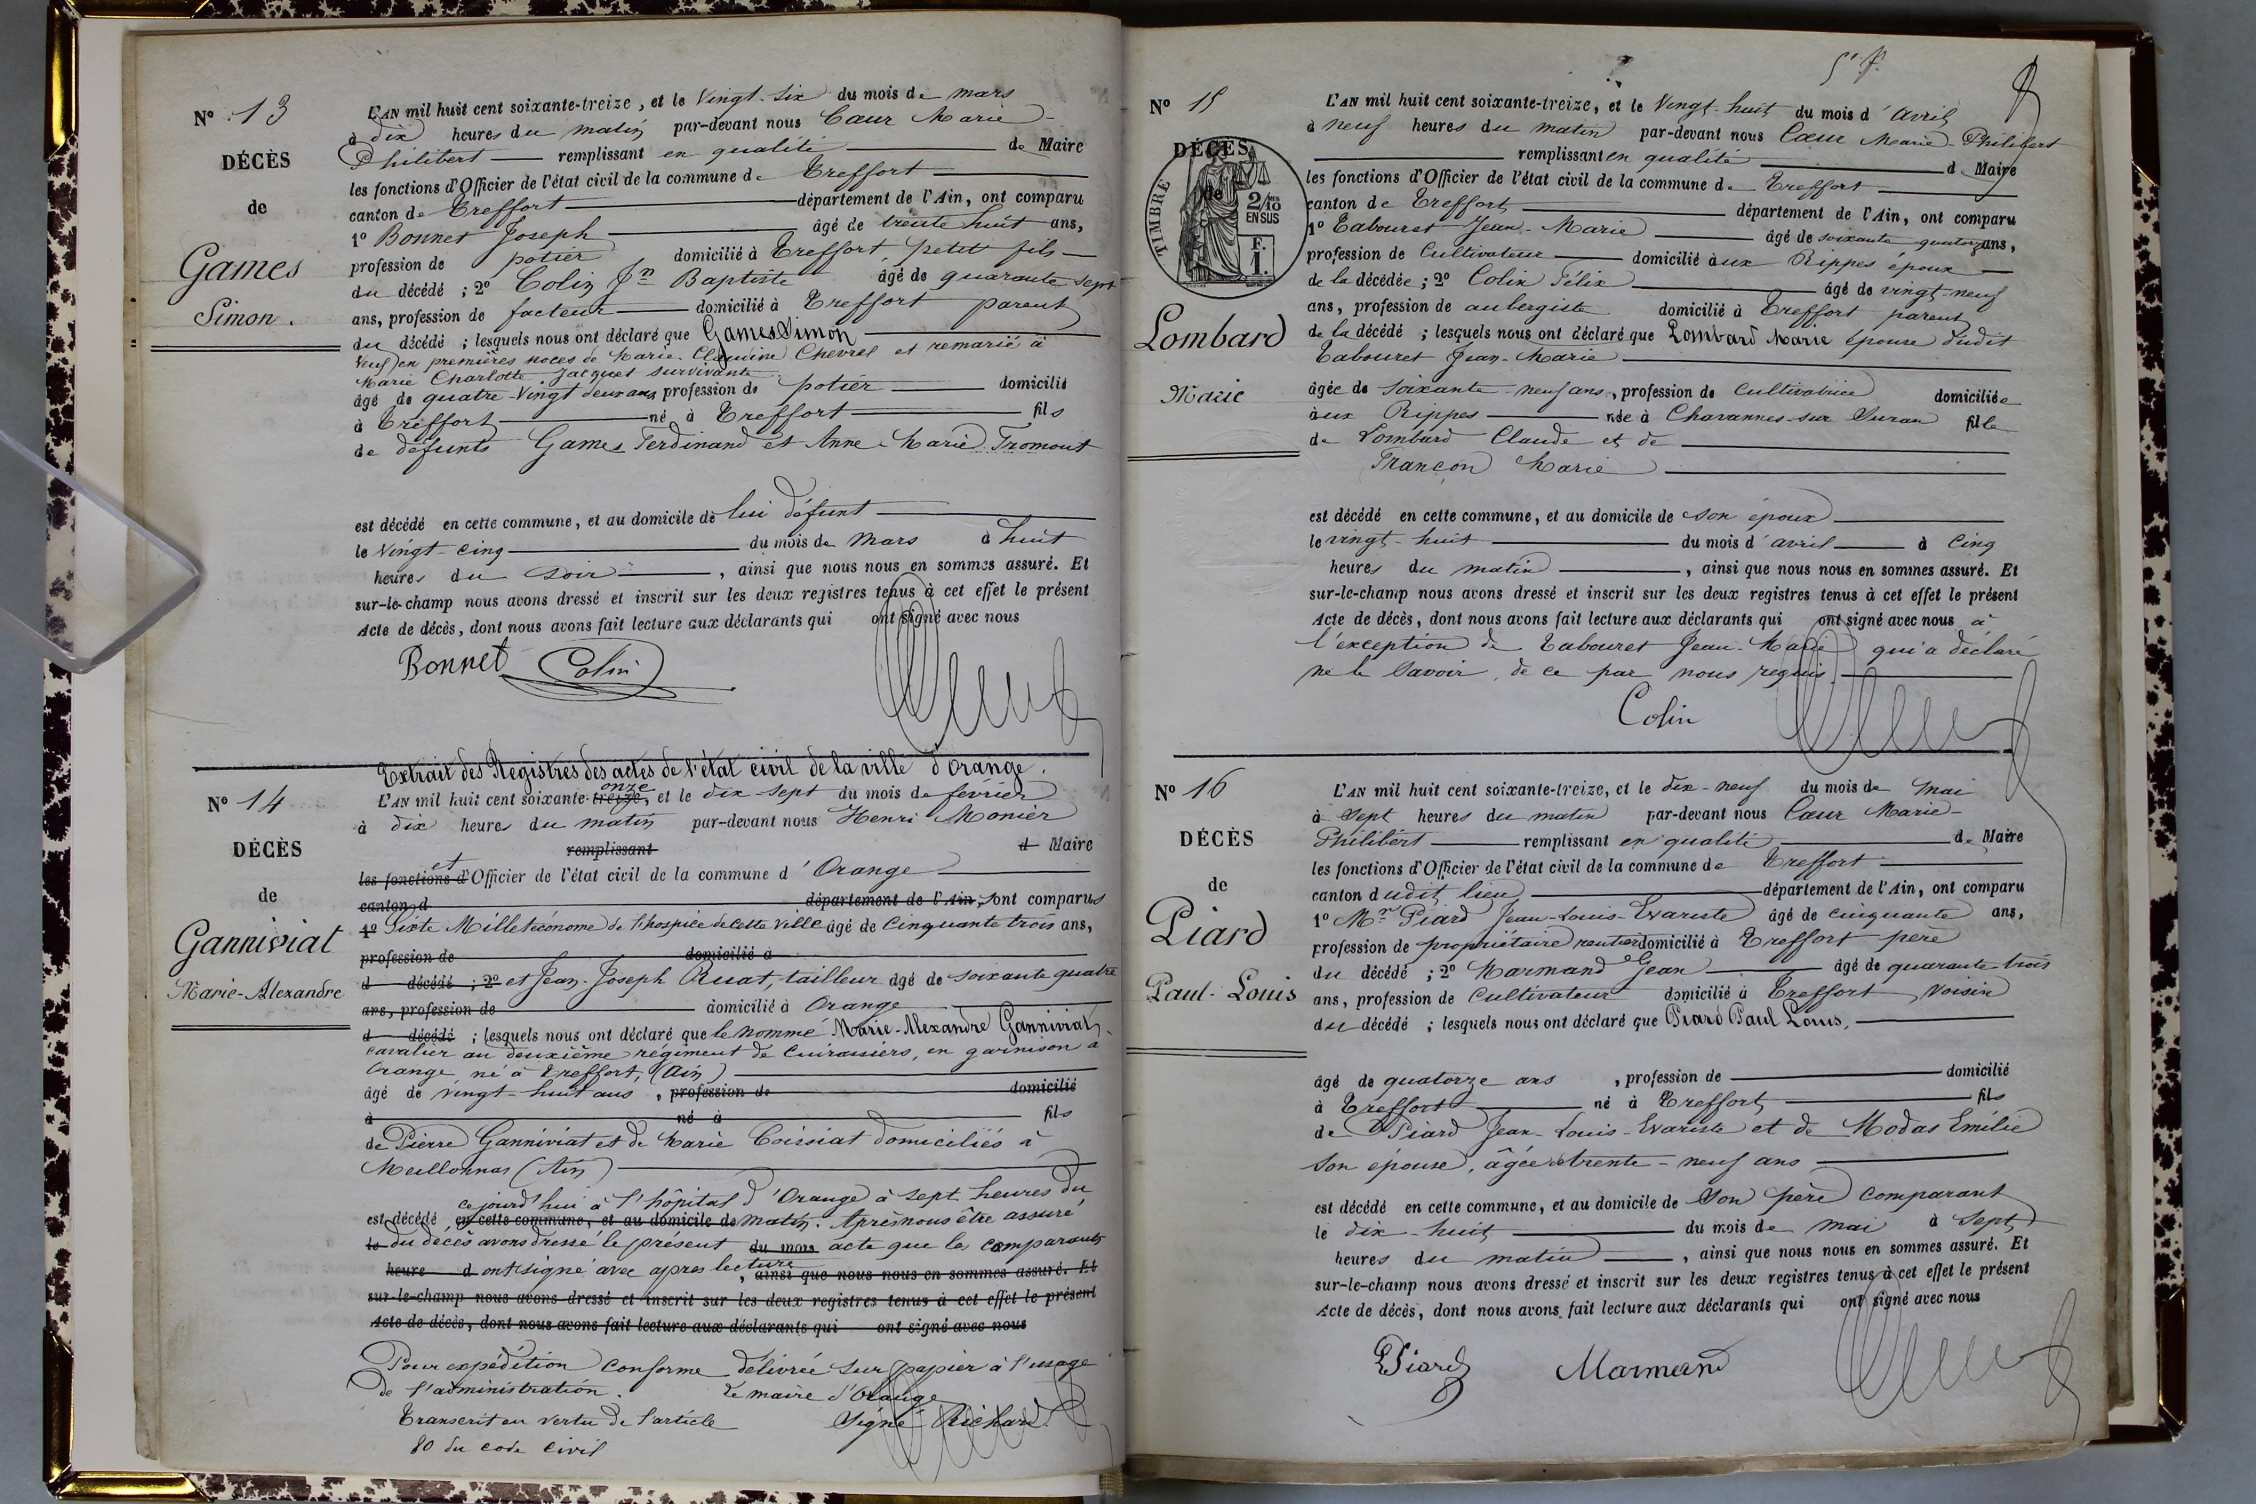 N° 13
DÉCÈS
de
Games
Simon.
L'AN mil huit cent soixante-treize, et le Vingt-six du mois de mars
à dix heures du matin par-devant nous Cœur Marie-
Philibert remplissant en qualité de Maire
les fonctions d'Officier de l'état civil de la commune de Treffort
canton de Treffort département de l'Ain, ont comparu
1° Bonnet Joseph âgé de trente huit ans,
profession de potier domicilié à Treffort petit fils
du décédé ; 2° Colin Jn Baptiste âgé de quarante sept
ans, profession de facteur domicilié à Treffort parent
du décédé ; lesquels nous ont déclaré que Games Simon
Veuf en premières noces de Marie Claudine Chevrel et remarié à
Marie Charlotte Jacquet survivante
âgé de quatre-Vingt deux ans, profession de potier domicilié
à Treffort né à Treffort fils
de défunts Games Ferdinand et Anne-Marie Fromont
est décédé en cette commune, et au domicile de lui défunt
le Vingt-cinq du mois de Mars à huit
heures du soir, ainsi que nous nous en sommes assuré. Et
sur-le-champ nous avons dressé et inscrit sur les deux registres tenus à cet effet le présent
Acte de décès, dont nous avons fait lecture aux déclarants qui ont signé avec nous
Bonnet Colin
N° 14
DÉCÈS
de
Ganniviat
Marie-Alexandre
Extrait des Registres des actes de l'état civil de la ville d'Orange.
onze
L'AN mil huit cent soixante-treize, et le dix-sept du mois de février
à dix heures du matin par-devant nous Henri Monier
remplissant d Maire
et
les fonctions d'Officier de l'état civil de la commune d'Orange
canton d département de l'Ain, sont comparus
1° Sixte Millet économe de l'hospice de cette ville âgé de Cinquante trois ans,
profession de domicilié à
d décédé ; 2° et Jean-Joseph Ruat, tailleur âgé de soixante quatre
ans, profession de domicilié à Orange
d décédé ; lesquels nous ont déclaré que le nommé Marie-Alexandre Ganniviat,
cavalier au deuxième régiment de Cuirassiers, en garnison à
Orange né à Treffort, (Ain)
âgé de vingt-huit ans, profession de domicilié
à né à fils
de Pierre Ganniviat et de Marie Coissiat domiciliés à
Meillonnas (Ain)
ce jourd'hui à l'hôpital d'Orange à sept heures du
est décédé en cette commune, et au domicile de matin. Après nous être assuré
le du décès avons dressé le présent du mois acte que les comparants
heure d ont signé avec après lecture, ainsi que nous nous en sommes assuré. Et
sur-le-champ nous avons dressé et inscrit sur les deux registres tenus à cet effet le présent
Acte de décès, dont nous avons fait lecture aux déclarants qui ont signé avec nous
Pour expédition conforme délivrée sur papier à l'usage
de l'administration. Le maire d'Orange
Transcrit en vertu de l'article Signé Richard.
80 du code civil
N° 15
DÉCÈS
de
TIMBRE
2/10
EN SUS
F.
1.
Lombard
Marie
L'AN mil huit cent soixante-treize, et le Vingt-huit du mois d'avril
à neuf heures du matin par-devant nous Cœur Marie-Philibert
remplissant en qualité de Maire
les fonctions d'Officier de l'état civil de la commune de Treffort
canton de Treffort département de l'Ain, ont comparu
1° Tabouret Jean-Marie âgé de soixante quatorze ans,
profession de Cultivateur domicilié aux Rippes époux
de la décédée ; 2° Colin Félix âgé de vingt-neuf
ans, profession de aubergiste domicilié à Treffort parent
de la décédé ; lesquels nous ont déclaré que Lombard Marie épouse dudit
Tabouret Jean-Marie
âgée de soixante-neuf ans, profession de Cultivatrice domiciliée
aux Rippes née à Chavannes-sur Suran fille
de Lombard Claude et de
Françon Marie
est décédé en cette commune, et au domicile de son époux
le vingt-huit du mois d'avril à cinq
heures du matin, ainsi que nous nous en sommes assuré. Et
sur-le-champ nous avons dressé et inscrit sur les deux registres tenus à cet effet le présent
Acte de décès, dont nous avons fait lecture aux déclarants qui ont signé avec nous à
l'exception de Tabouret Jean-Marie qui a déclaré
ne le savoir, de ce par nous requis
Colin
N° 16
DÉCÈS
de
Piard
Paul-Louis
L'AN mil huit cent soixante-treize, et le dix-neuf du mois de mai
à sept heures du matin par-devant nous Cœur Marie-
Philibert remplissant en qualité de Maire
les fonctions d'Officier de l'état civil de la commune de Treffort
canton dudit lieu département de l'Ain, ont comparu
1° Mr Piard Jean-Louis-Evariste âgé de cinquante ans,
profession de propriétaire rentier domicilié à Treffort père
du décédé ; 2° Marmand Jean âgé de quarante-trois
ans, profession de Cultivateur domicilié à Treffort voisin
du décédé ; lesquels nous ont déclaré que Piard Paul Louis,
âgé de quatorze ans, profession de domicilié
à Treffort né à Treffort fils
de Piard Jean-Louis-Evariste et de Modas Emélie
son épouse, âgée de trente-neuf ans
est décédé en cette commune, et au domicile de son père comparant
le dix-huit du mois de mai à sept
heures du matin, ainsi que nous nous en sommes assuré. Et
sur-le-champ nous avons dressé et inscrit sur les deux registres tenus à cet effet le présent
Acte de décès, dont nous avons fait lecture aux déclarants qui ont signé avec nous
Piard Marmand